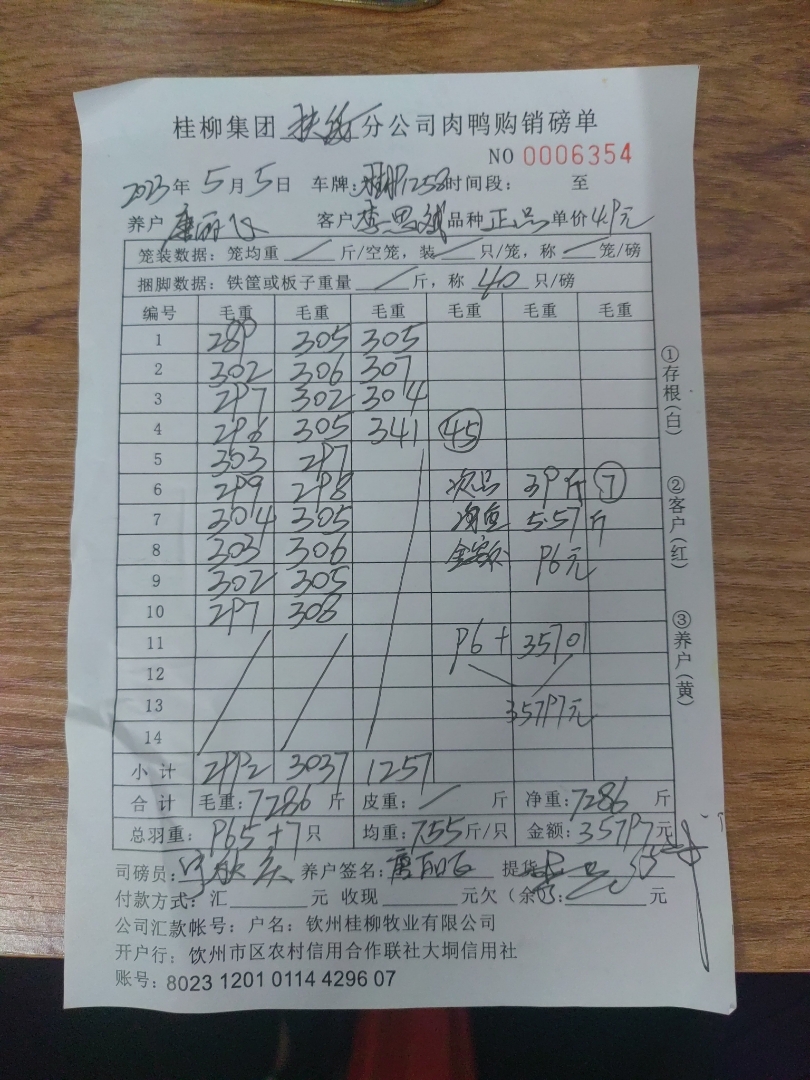 桂柳集团 分公司肉鸭购销磅单
NO 0006354
2023年 5月 5日 车牌: 1253 时间段: 至
养户 唐丽 客户 李思 品种 正品 单价 4.9元
笼装数据: 笼均重 / 斤/空笼, 装 / 只/笼, 称 / 笼/磅
捆脚数据: 铁筐或板子重量 / 斤, 称 40 只/磅
编号 毛重 毛重 毛重 毛重 毛重 毛重
1 289 305 305
2 302 306 307
3 297 302 304
4 296 305 341 45
5 303 297
6 299 298 次品 39斤 7
7 304 305 均重 5.57斤
8 303 306 金额 96元
9 302 305
10 297 308
11 96 + 35701
12
13 35797元
14
小计 2992 3037 1257
合计 毛重: 7286 斤 皮重: / 斤 净重: 7286 斤
总羽重: 965+7 只 均重: 7.55 斤/只 金额: 35797 元
司磅员: 养户签名: 唐丽 提货
付款方式: 汇 元 收现 元欠(余): 元
公司汇款帐号: 户名: 钦州桂柳牧业有限公司
开户行: 钦州市区农村信用合作联社大垌信用社
账号: 8023 1201 0114 4296 07
①存根(白)
②客户(红)
③养户(黄)